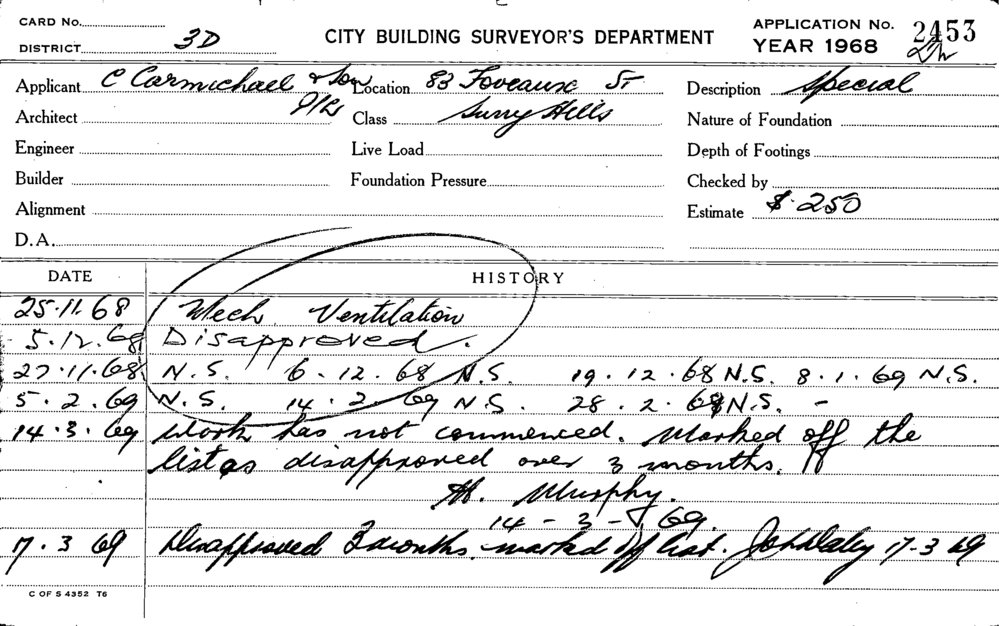 CARD No.
DISTRICT 3D
CITY BUILDING SURVEYOR'S DEPARTMENT
APPLICATION No. 2453
YEAR 1968
Applicant C Carmichael & Son P/L Location 83 Foveaux St Description Special
Architect Class Surry Hills Nature of Foundation
Engineer Live Load Depth of Footings
Builder Foundation Pressure Checked by
Alignment Estimate $.250
D.A.
DATE HISTORY
25.11.68 Mech Ventilation
5.12.68 Disapproved.
27.11.68 N.S. 6.12.68 N.S. 19.12.68 N.S. 8.1.69 N.S.
5.2.69 N.S. 14.2.69 N.S. 28.2.69 N.S. -
14.3.69 Work has not commenced. Marked off the
list as disapproved over 3 months.
Murphy.
14-3-69.
17.3 69 Disapproved 3 months. marked off list. 17-3 69
C OF S 4352 T6